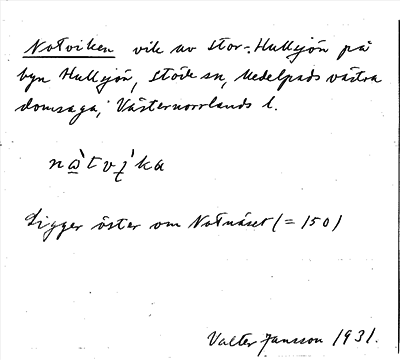 Notviken vik av Stor-Hullsjön på
byn Hullsjön, Stöde sn, Medelpads västra
domsaga, Västernorrlands l.
nὼtvì̯ka
Ligger öster om Notnäset (= 150)
Valter Jansson 1931.